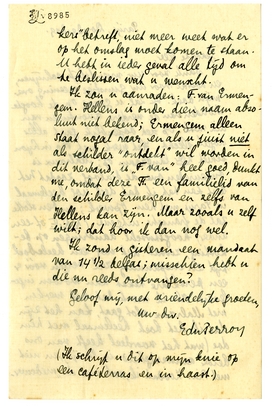 8985
hers" betreft, niet meer weet wat er
op het omslag moet komen te staan.
U hebt in ieder geval alle tijd om
te beslissen wat u wenscht.
Ik zou u aanraden: F. van Ermen-
gem. Hellens is onder dien naam abso-
luut niet bekend; Ermengem alleen
staat nogal raar, en als u juist niet
als schilder "ontdekt" wil worden in
dit verband, is "F. van" heel goed, dunkt
me, omdat deze F. een familielid van
den schilder Ermengem en zelfs van
Hellens kan zijn. Maar zooals u zelf
wilt; dat hoor ik dan nog wel.
Ik zond u gisteren een mandaat
van 14 1/2 belgas; misschien hebt u
die nu reeds ontvangen?
Geloof mij, met vriendelijke groeten,
uw dw.
EduPerron
(Ik schrijf u dit op mijn knie op
een caféterras en in haast.)